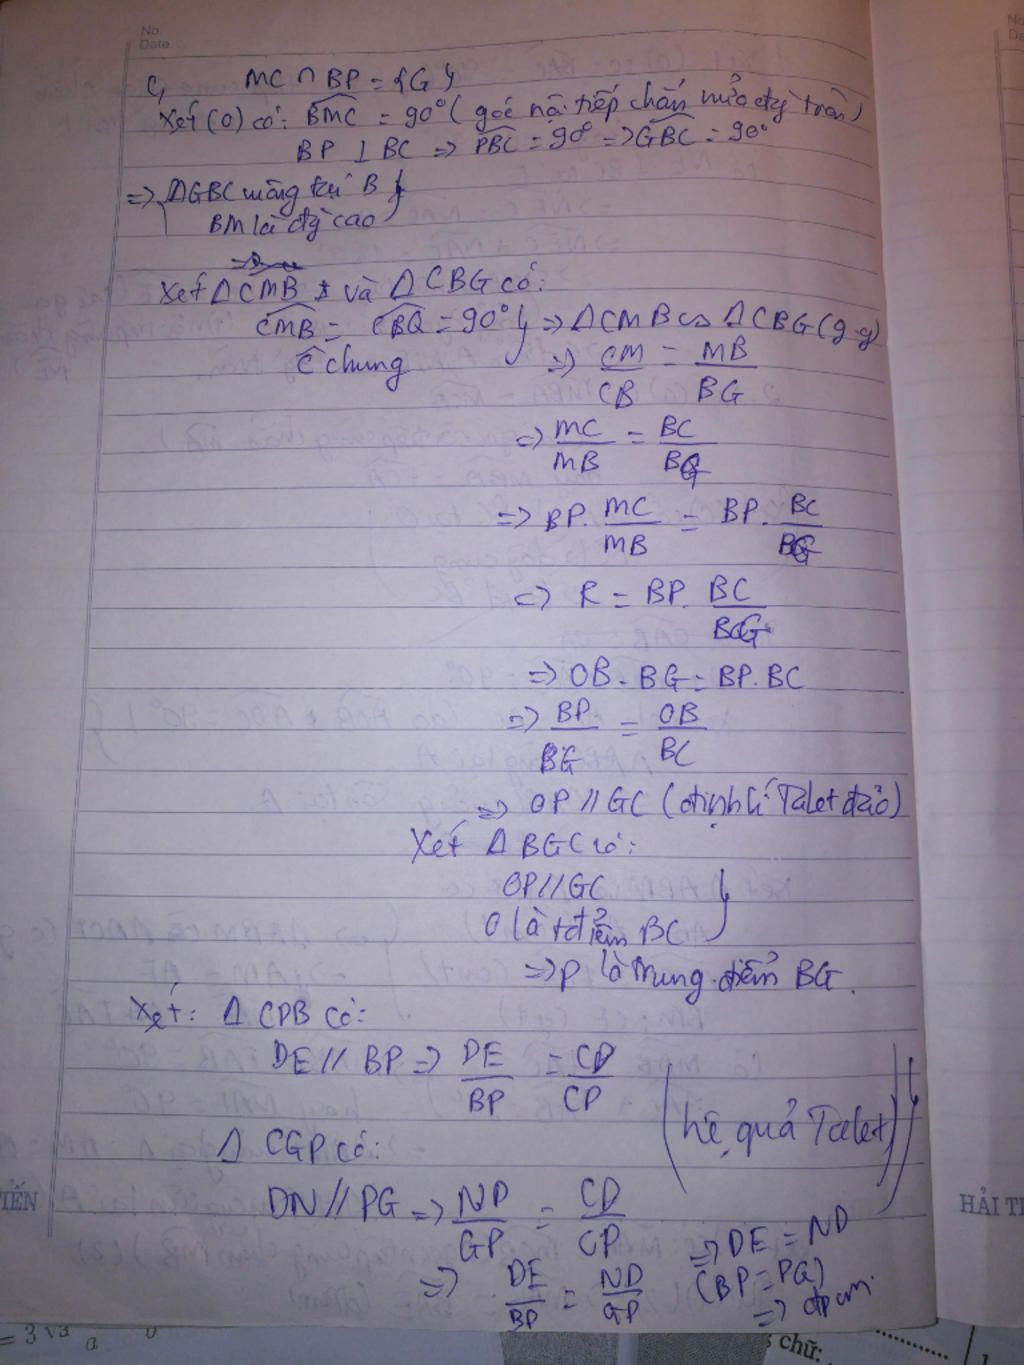 No.
Date
c, MC ∩ BP = {G}
Xét (O) có: BMC = 90° (góc nội tiếp chắn nửa đg tròn)
BP ⊥ BC => PBC = 90° => GBC = 90°
=> ΔGBC vuông tại B
BM là đg cao
Xét ΔCMB và ΔCBG có:
CMB = CBG = 90° } => ΔCMB ∽ ΔCBG (g.g)
C chung => CM/CB = MB/BG
=> MC/MB = BC/BG
=> BP. MC/MB = BP. BC/BG
=> R = BP. BC/BG
=> OB. BG = BP. BC
=> BP/BG = OB/BC
=> OP // GC (định lí Talet đảo)
Xét Δ BGC có:
OP // GC
O là tđiểm BC
=> P là trung điểm BG.
Xét: Δ CPB có:
DE // BP => DE/BP = CD/CP
(hệ quả Talet)
Δ CGP có:
DN // PG => ND/GP = CD/CP
=> DE = ND
=> DE/BP = ND/GP (BP = PG)
=> đpcm.
TIẾN
HẢI T
= 3√3
a
chữ: